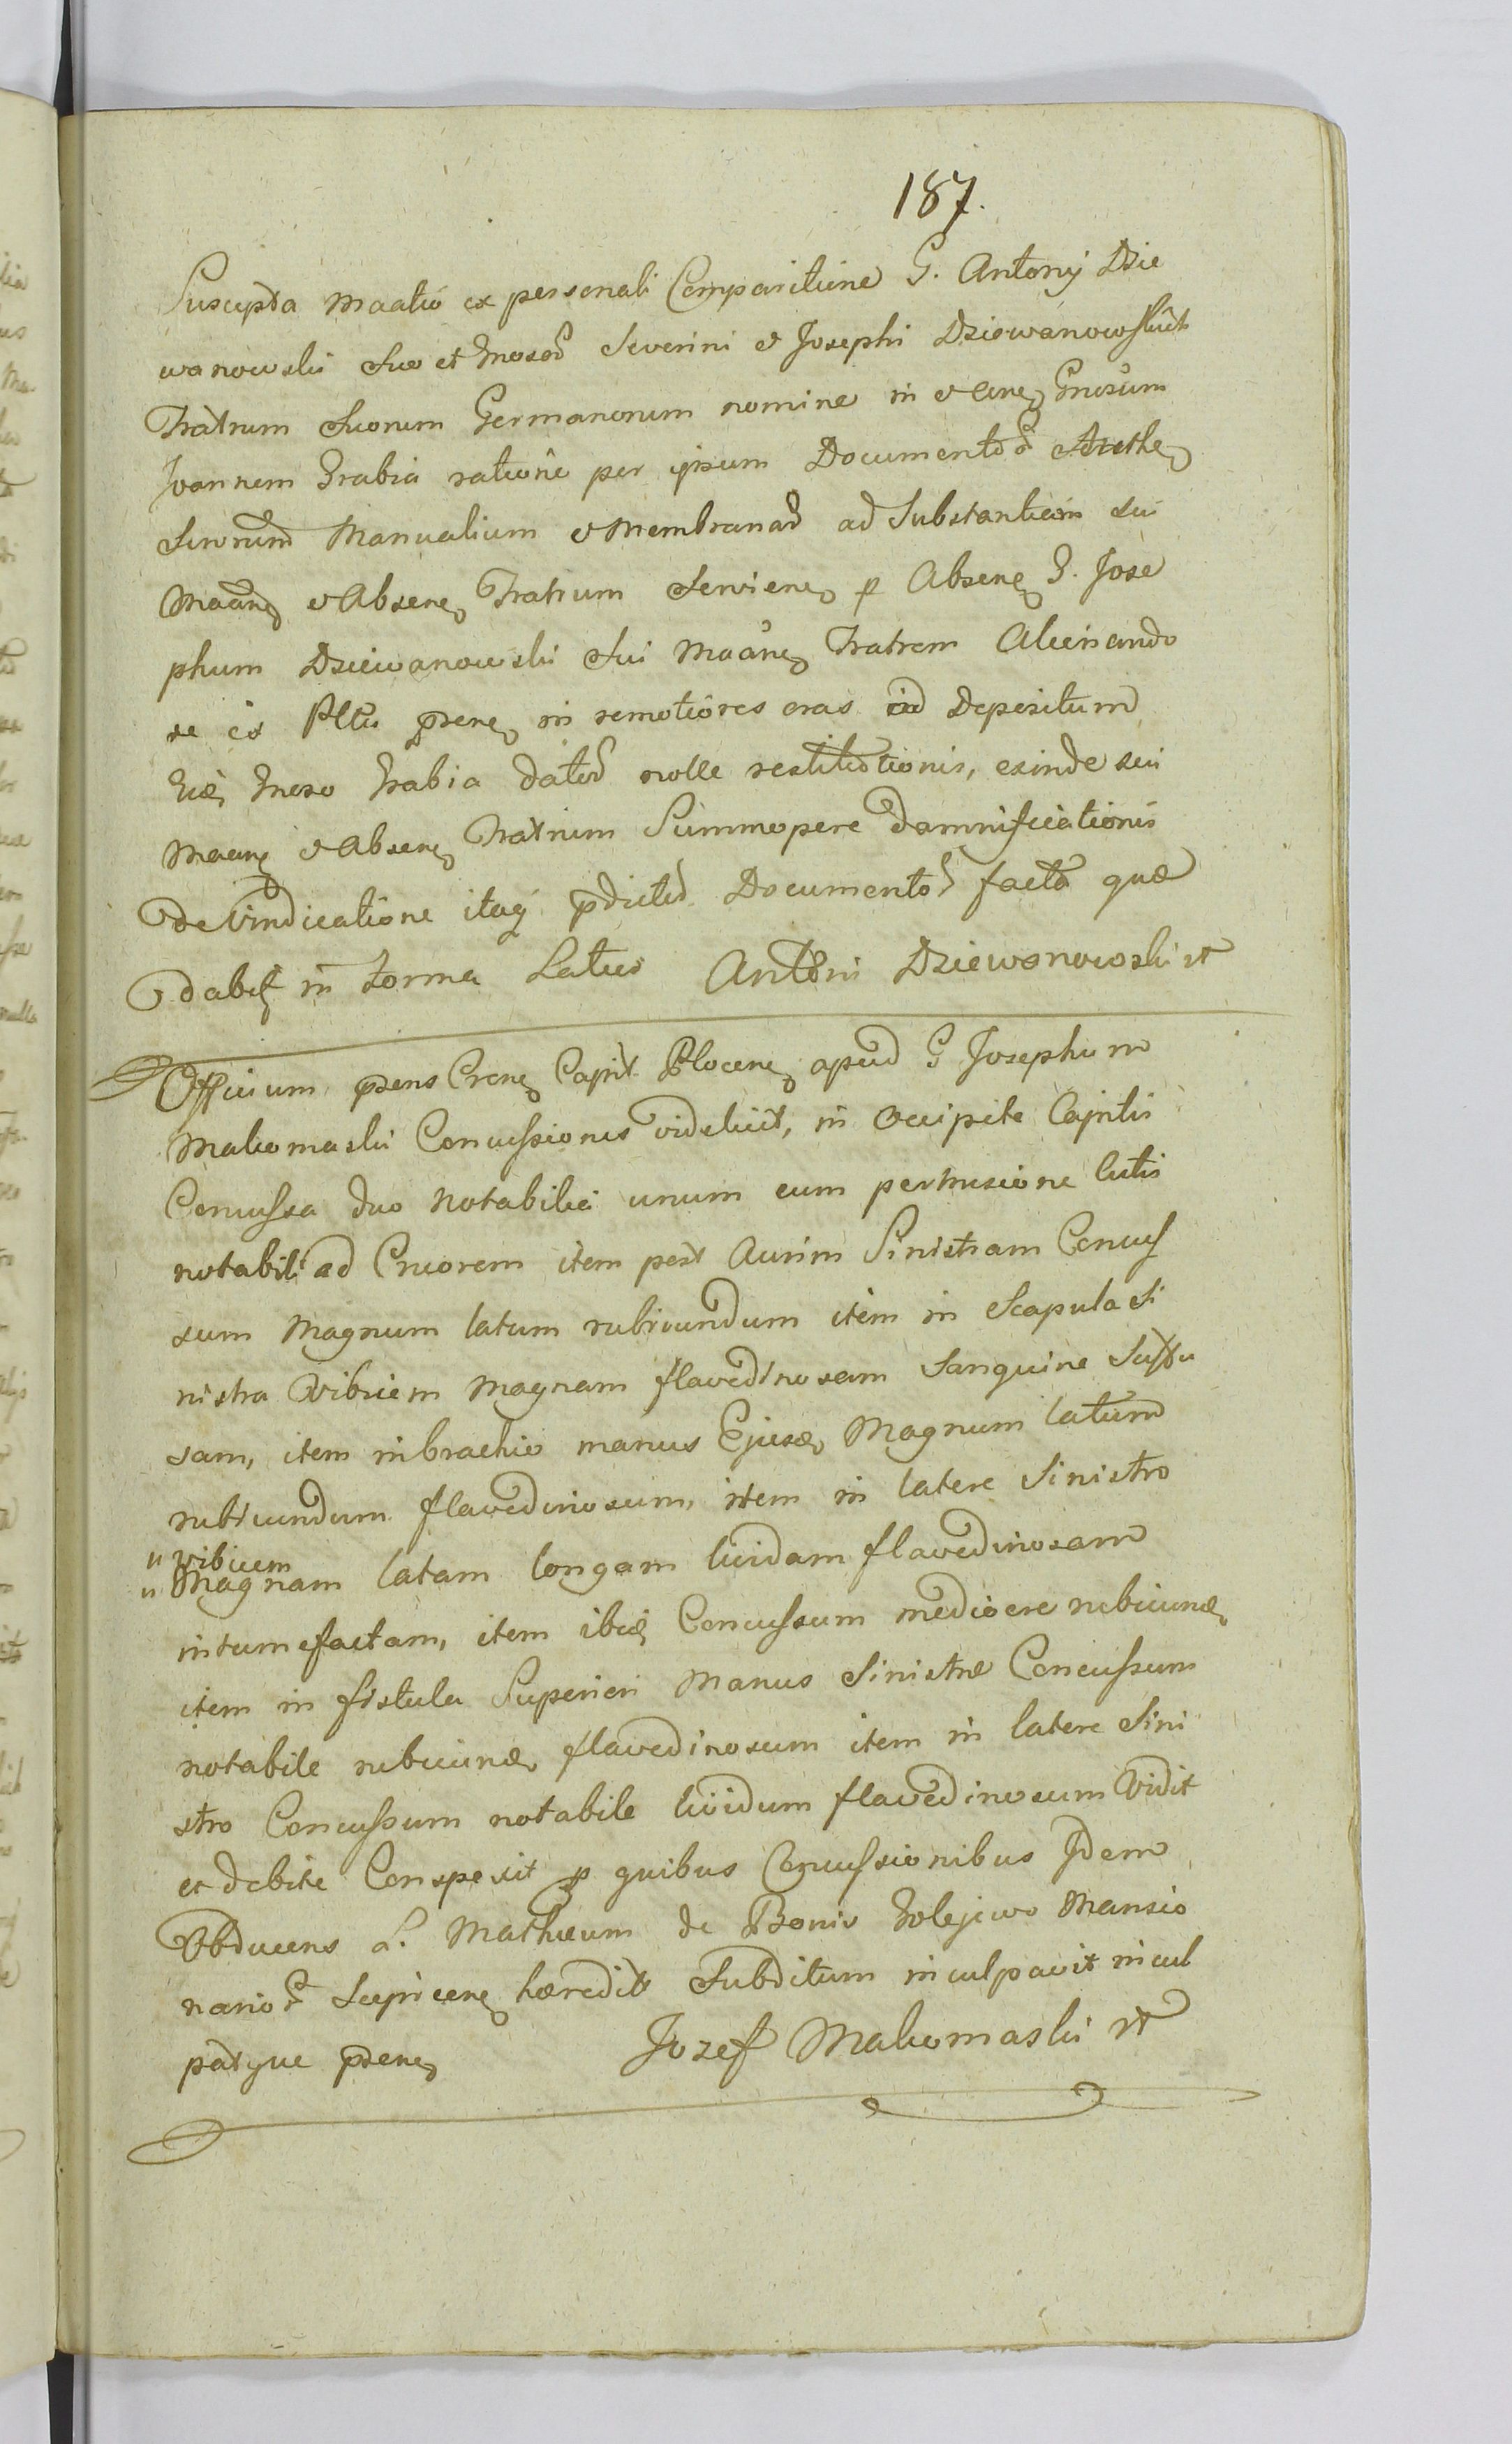 187.
Suscepta Maatio ex personali Comparitione G. Antonij Dzie
wanowski Suo et Gnosor Severini et Josephi Dziewanowskich
Fratrum Suorum Germanorum nomine in et Cone Gnosum
Joannem Grabia ratione per ipsum Documentor
Suorum Manualium et Membranar ad Substantiam Sui
Maane et Absene Fratrum Serviene p Absene G. Jose
phum Dziewanowski Sui Maane Fratrem Alienando
se ex Pltu psene in remotiores oras ad Depositum
Eid Gnoso Grabia dator nolle restitutionis, exinde sui
Maane et Absene Fratrum Summopere damnificationis
de Vindicatione itaq pdictor Documentor facta quæ
dabit in Forma Latius Antoni Dziewanowski st
Officium psens Crene Capit Plocene apud G Josephum
Malromaski Concussiones videlicit, in Occipite Capitis
Concussa duo Notabilia unum cum pertusione Cutis
notabili ad Cruorem item post Aurim Sinistram Concus
sum Magnum latum rubicundum item in Scapula Si
nistra Vibicem Magnam flavedinosam Sanguine Suffu
sam, item in brachio manus Ejusd Magnum latum
rubicundum flavedinosum, item in latere Sinistro
" vibicem
" Magnam latam longam lividam flavedinosam
intumefactam, item ibid Concussum mediocre rubicund
item in fistula Superiori Manus Sinistræ Concussum
notabile rubicund flavedinosum item in latere Sini
stro Concussum notabile lividum flavedinosum Vidit
et debite Conspexit p quibus Concussionibus Idem
Obducens L. Mathæum de Bonis Golejewo Mansio
narior hæredit Subditum inculpavit incul
patque psene Jozef Malromaski st